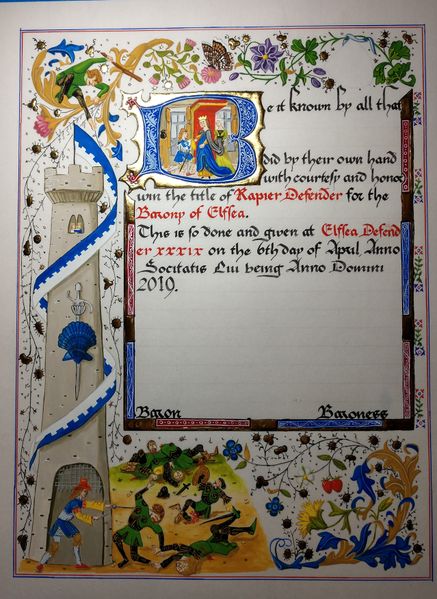 Be it known by all that
did by their own hand
with courtesy and honor
win the title of Rapier Defender for the
Barony of Elfsea.
This is so done and given at Elfsea Defend
er xxxix on the 6th day of April, Anno
Socitatis Liii being Anno Domini
2019.
Baron Baroness